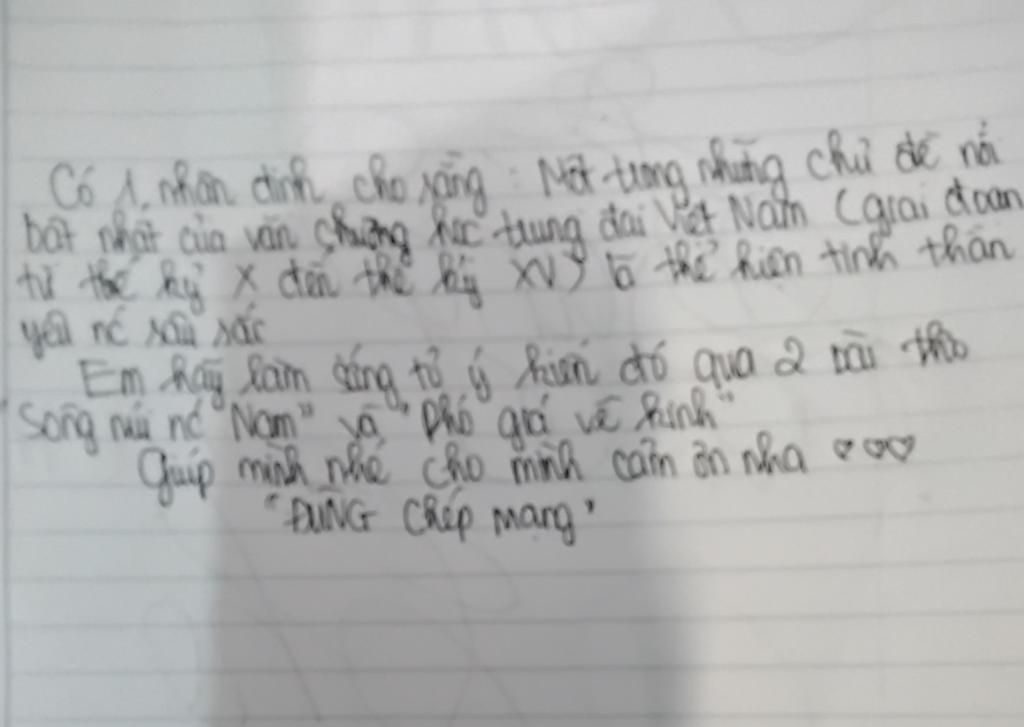 Có 1, nhận định cho rằng : Một trong những chủ đề nổi
bật nhất của văn chương học trung đại Việt Nam (giai đoạn
từ thế kỷ X đến thế kỷ XV) là thể hiện tinh thần
yêu nc sâu sắc
Em hãy làm sáng tỏ ý kiến đó qua 2 bài thơ
Sông núi nc "Nam" và "Phò giá về kinh"
Giúp mình nhé cho mình cảm ơn nha ♡♡♡
"ĐỪNG chép mạng"